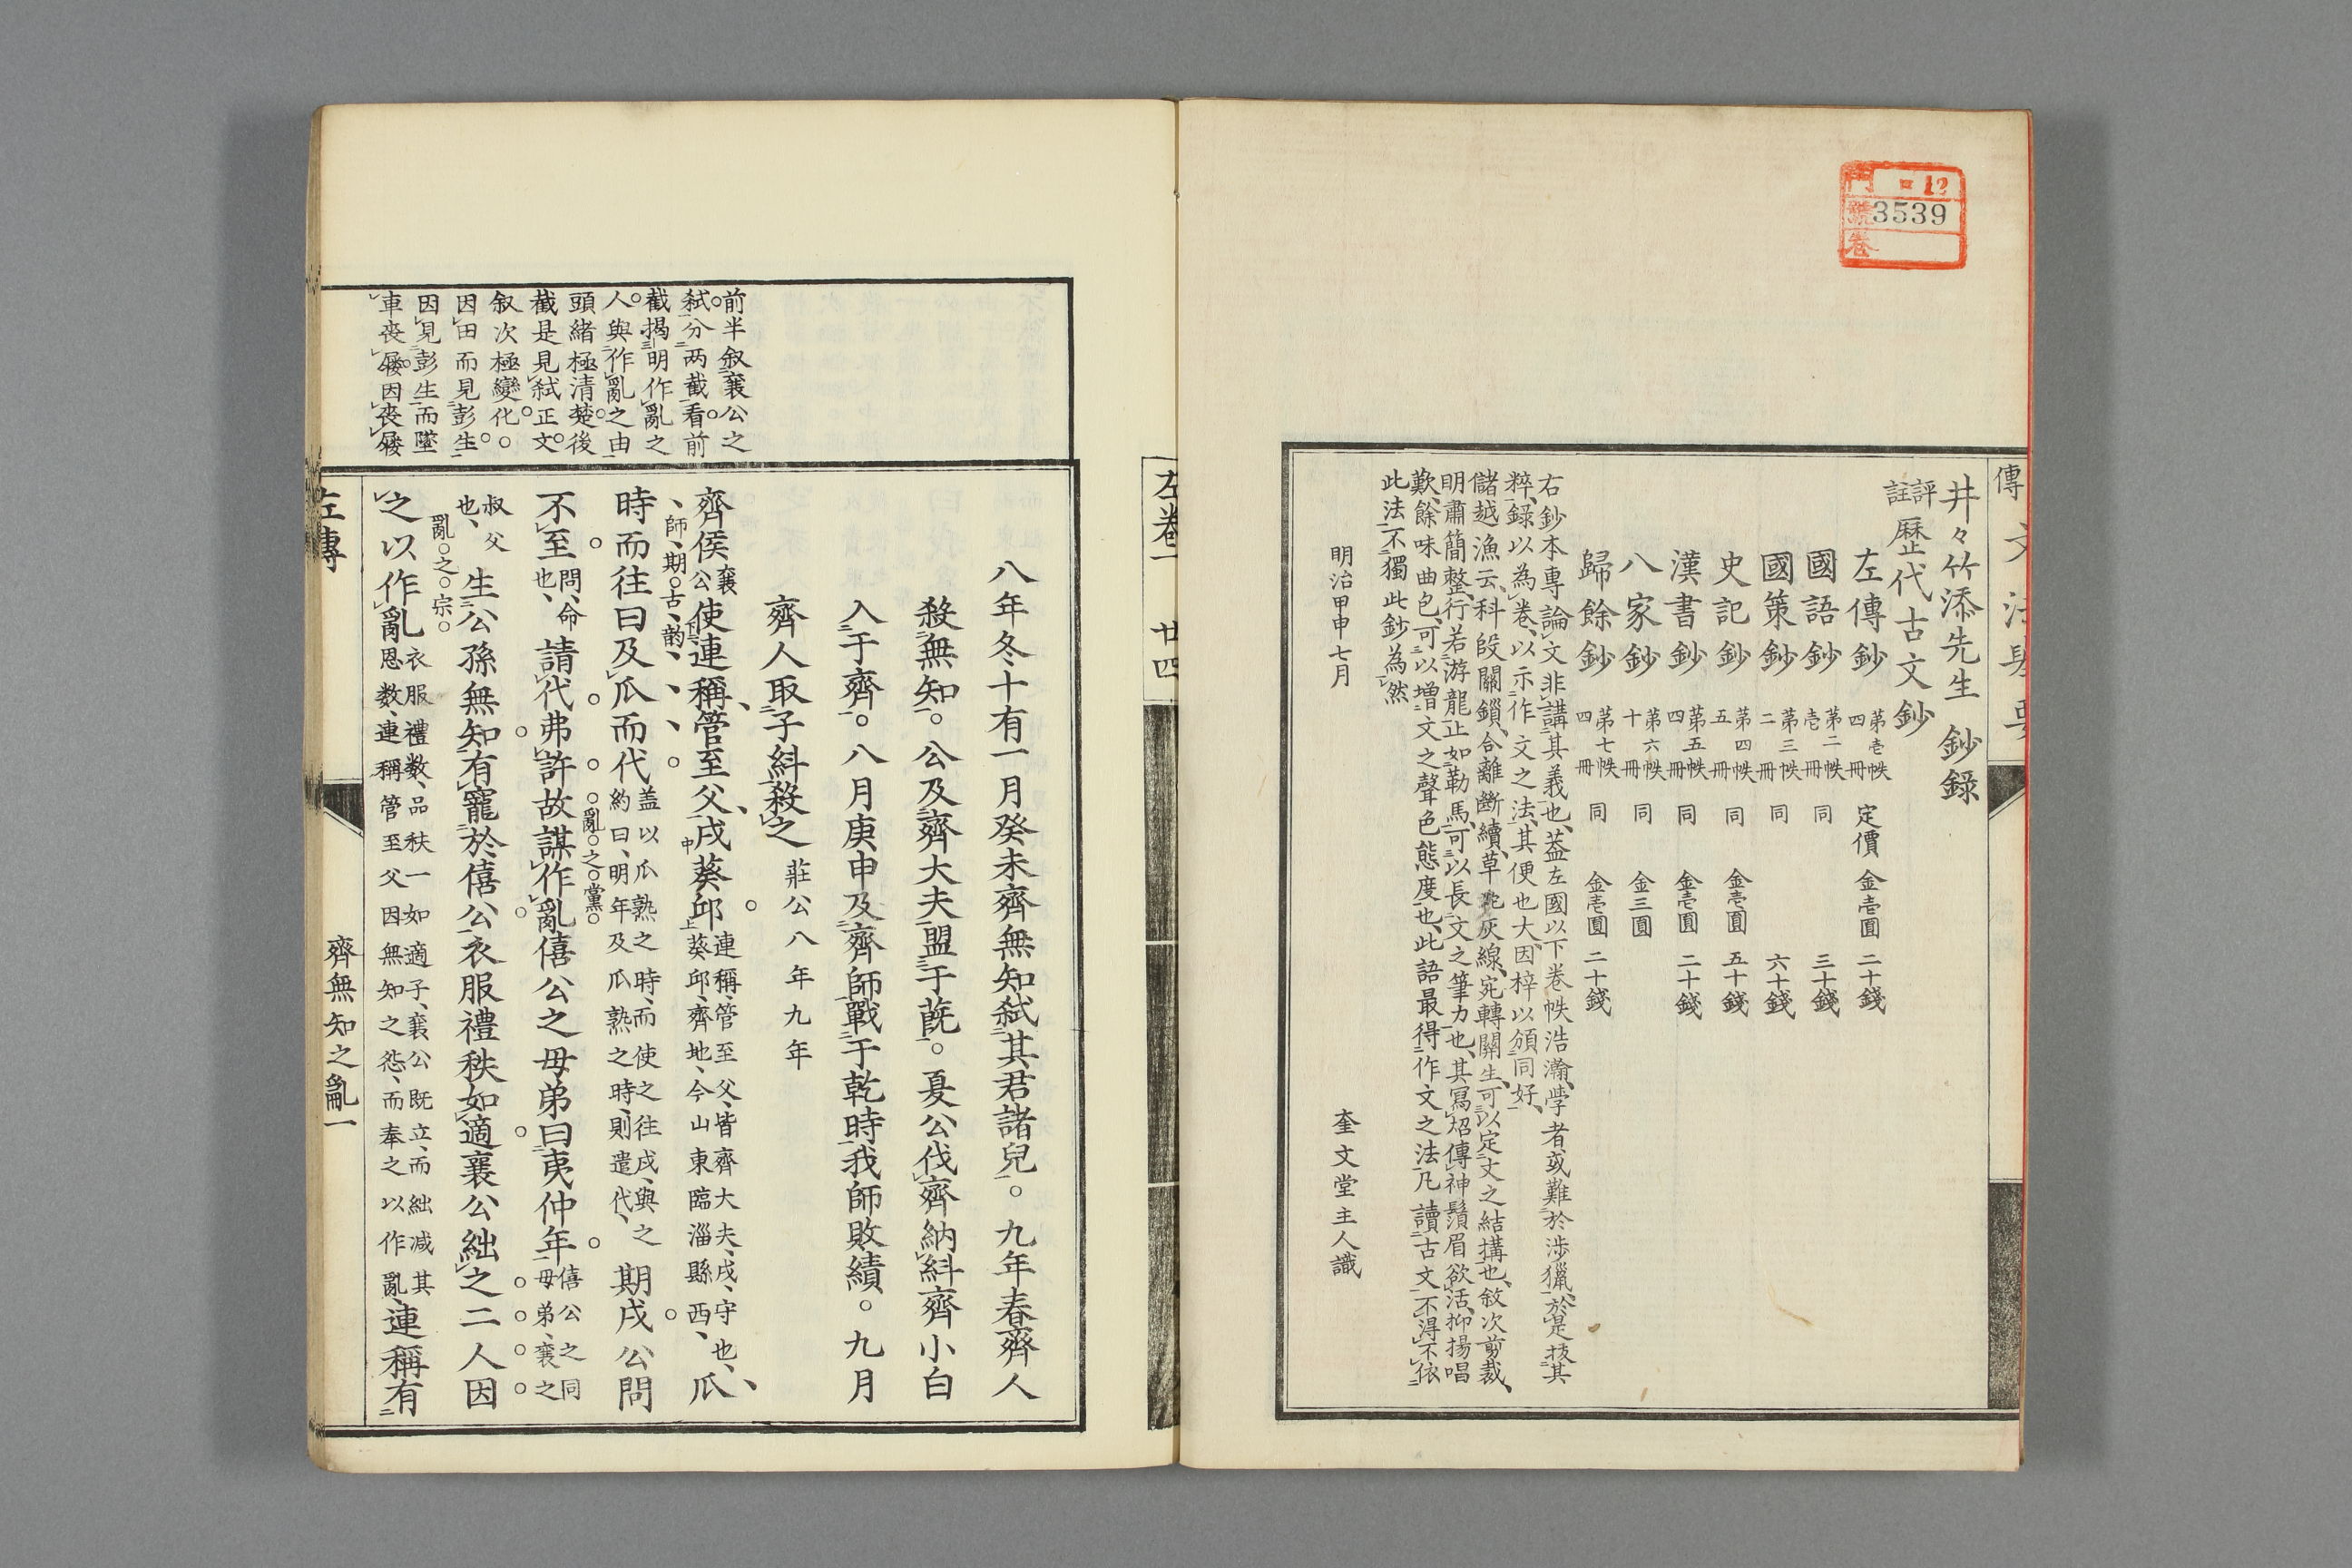 門 12
號 3539
卷
井々竹添先生 鈔錄
評註歷代古文鈔
左傳鈔 第壱帙四冊 定價 金壱圓 二十錢
國語鈔 第二帙壱冊 同 三十錢
國策鈔 第三帙二冊 同 六十錢
史記鈔 第四帙五冊 同 金壱圓 五十錢
漢書鈔 第五帙四冊 同 金壱圓 二十錢
八家鈔 第六帙十冊 同 金三圓
歸餘鈔 第七帙四冊 同 金壱圓 二十錢
右鈔本專論文非講其義也、蓋左國以下卷帙浩瀚、學者或難於涉獵、於是拔其
粹、錄以為卷、以示作文之法、其便也大、因梓以頒同好、
儲越漁云、科段關鎖、合離斷續、草蛇灰線、宛轉關生、可以定文之結搆也、敘次剪裁、
明肅簡整、行若游龍、止如勒馬、可以長文之筆力也、其寫炤傳神、鬚眉欲活、抑揚唱
歎、餘味曲包、可以增文之聲色態度也、此語最得作文之法、凡讀古文、不得不依
此法、不獨此鈔為然
明治甲申七月
奎文堂主人識
左卷一 廿四
前半叙襄公之
弑。分两截看。前
截揭明作亂之
人。與作亂之由。
頭緒極清楚。後
截是見弑正文。
叙次極變化。○
因田而見彭生。
因見彭生而墜
車喪屨。因喪屨
八年冬十有一月癸未齊無知弑其君諸兒。九年春齊人
殺無知。公及齊大夫盟于蔇。夏公伐齊納糾齊小白
入于齊。八月庚申及齊師戰于乾時我師敗績。九月
齊人取子糾殺之 莊公八年九年
齊侯襄公使連稱管至父戍葵邱連稱、管至父、皆齊大夫、戍、守也、葵邱、齊地、今山東臨淄縣西、瓜
師、期○古、韵、
時而往曰及瓜而代蓋以瓜熟之時、而使之往戍、與之約曰、明年及瓜熟之時、則遣代、期戍公問
不至問、命也、請代弗許故謀作亂僖公之母弟曰夷仲年僖公之同母弟、襄之
亂○之○黨○
叔父也、生公孫無知有寵於僖公衣服禮秩如適襄公絀之二人因
亂○之○宗○
之以作亂衣服禮數、品秩一如適子、襄公既立、而絀減其恩數、連稱管至父因無知之怨、而奉之以作亂、連稱有
左傳 齊無知之亂一